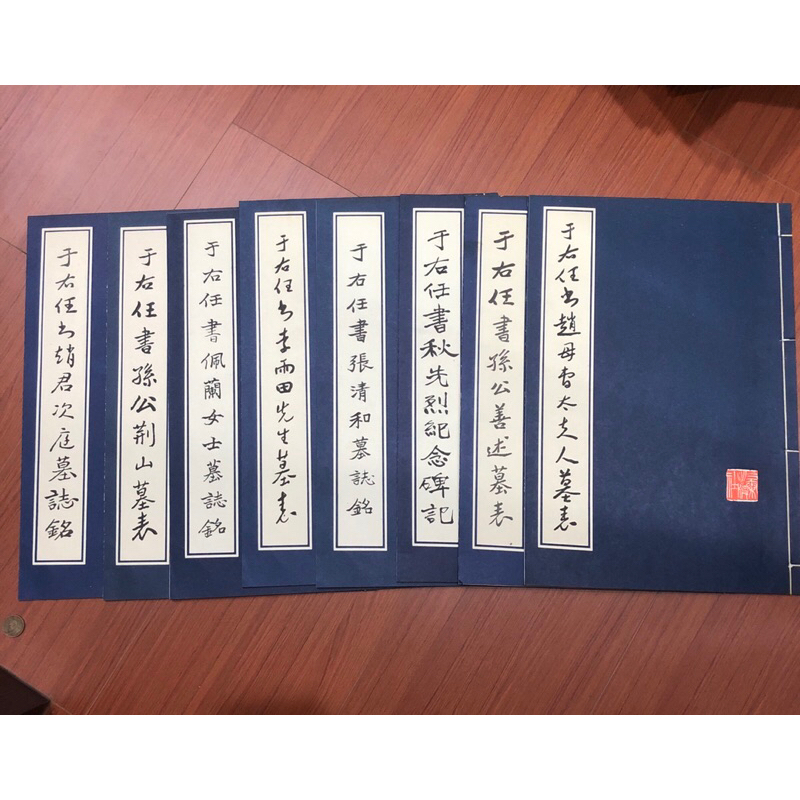 于右任书赵君次庭墓誌銘
于右任書孫公荆山墓表
于右任書佩蘭女士墓誌銘
于右任书李雨田先生墓表
于右任書張清和墓誌銘
于右任書秋先烈紀念碑記
于右任書孫公善述墓表
于右任书趙母曹太夫人墓表